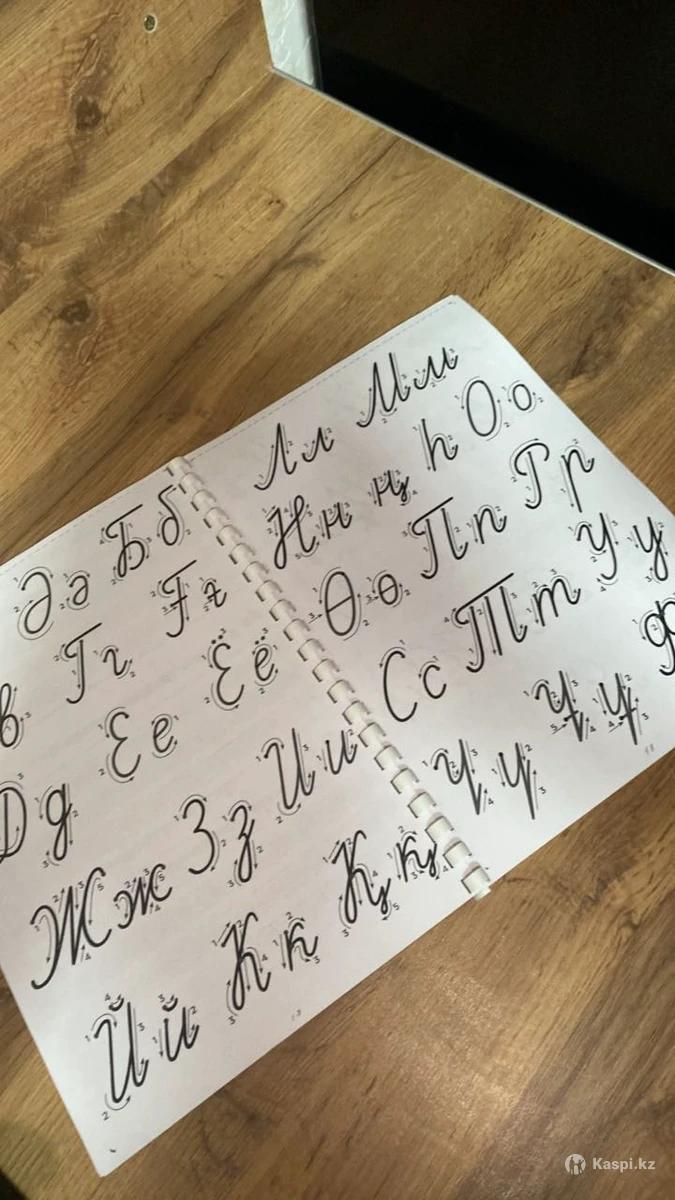 Әә Бб
в Гг Ғғ
Дд Ее Ёё
Жж Зз Ии
Йй Кк Ққ
Лл Мм
Нн ң һ Оо
Өө Пп Рр
Сс Тт Уу
Үү Ұұ ф
Kaspi.kz